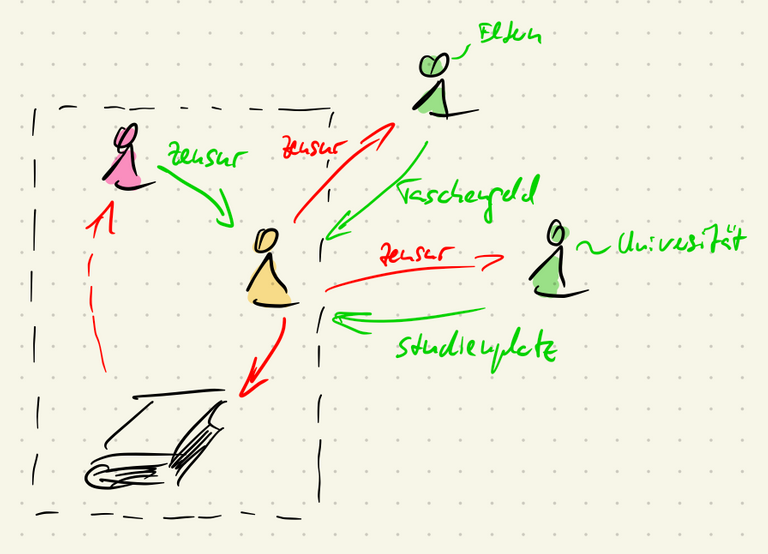 Eltern
Zensur
Zensur
Taschengeld
Zensur
Universität
Studienplatz